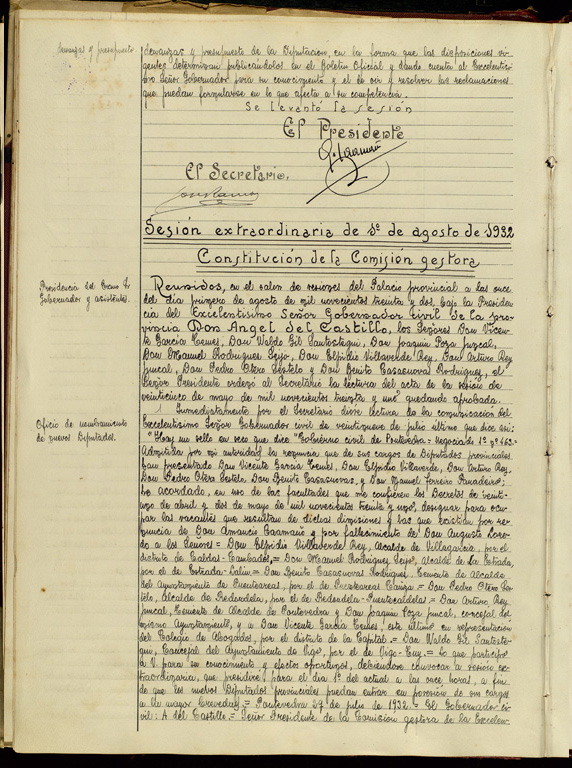 denanzas y presupuesto
denanzas y presupuesto de la Diputación, en la forma que las disposiciones vi-
gentes determinan publicándolos en el Boletín Oficial y dando cuenta al Excelentísi-
mo Señor Gobernador para su conocimiento y el de oir y resolver las reclamaciones
que puedan formularse en lo que afecta a su competencia.
Se levantó la sesión
El Presidente
El Secretario,
Sesión extraordinaria de 1º de agosto de 1932
Constitución de la Comisión gestora
Presidencia del Excmo Sr
Gobernador y asistentes.
Reunidos, en el salón de sesiones del Palacio provincial a las once
del día primero de agosto de mil novecientos treinta y dos bajo la Presiden-
cia del Excelentísimo Señor Gobernador Civil de la pro-
vincia Don Angel del Castillo, los Señores Don Vicen-
te García Temes, Don Waldo Gil Santostegui, Don Joaquín Poza Juncal,
Don Manuel Rodríguez Seijo, Don Elpidio Villaverde Rey, Don Arturo Rey
Juncal, Don Pedro Otero Sestelo y Don Benito Casasnovas Rodríguez, el
Señor Presidente ordenó al Secretario la lectura del acta de la sesión de
veinticinco de mayo de mil novecientos treinta y uno quedando aprobada.
Oficio de nombramiento
de nuevos Diputados.
Inmediatamente por el Secretario dióse lectura de la comunicación del
Excelentísimo Señor Gobernador civil de veintinueve de julio último que dice así:
"Hay un sello en seco que dice "Gobierno civil de Pontevedra = Negociado 1º nº 463=
Admitida por mi autoridad la renuncia que de sus cargos de Diputados provinciales
han presentado Don Vicente García Temes, Don Elpidio Villaverde, Don Arturo Rey,
Don Pedro Otero Sestelo, Don Benito Casasnovas, y Don Manuel Ferreiro Panadeiro;
he acordado, en uso de las facultades que me confieren los Decretos de veinti-
uno de abril y dos de mayo de mil novecientos treinta y uno, designar para ocu-
par las vacantes que resultan de dichas dimisiones y las que existían por re-
nuncia de Don Amancio Caamaño y por fallecimiento de Don Augusto
a los Señores = Don Elpidio Villaverde Rey, Alcalde de Villagarcía, por el
distrito de Caldas-Cambados = Don Manuel Rodríguez Seijo, Alcalde de La Estrada,
por el de Estrada-Lalín = Don Benito Casasnovas Rodríguez, Teniente de Alcalde
del Ayuntamiento de Puenteareas, por el de Puenteareas Cañiza = Don Pedro Otero Ses-
telo, Alcalde de Redondela, por el de Redondela-Puentecaldelas = Don Arturo Rey
Juncal, Teniente de Alcalde de Pontevedra y Don Joaquín Poza Juncal, concejal del
mismo Ayuntamiento, y a Don Vicente García Temes, este último en representación
del Colegio de Abogados, por el distrito de la Capital = Don Waldo Gil Santoste-
gui, Concejal del Ayuntamiento de Vigo, por el de Vigo-Tuy = Lo que participo
a V. para su conocimiento y efectos oportunos, debiendo convocar a sesión ex-
traordinaria, que presidiré, para el día 1º del actual a las once horas, a fin
de que los nuevos Diputados provinciales puedan entrar en posesión de sus cargos
a la mayor brevedad = Pontevedra 29 de julio de 1932 = El Gobernador ci-
vil: A del Castillo = Señor Presidente de la Comisión gestora de la Excelen-